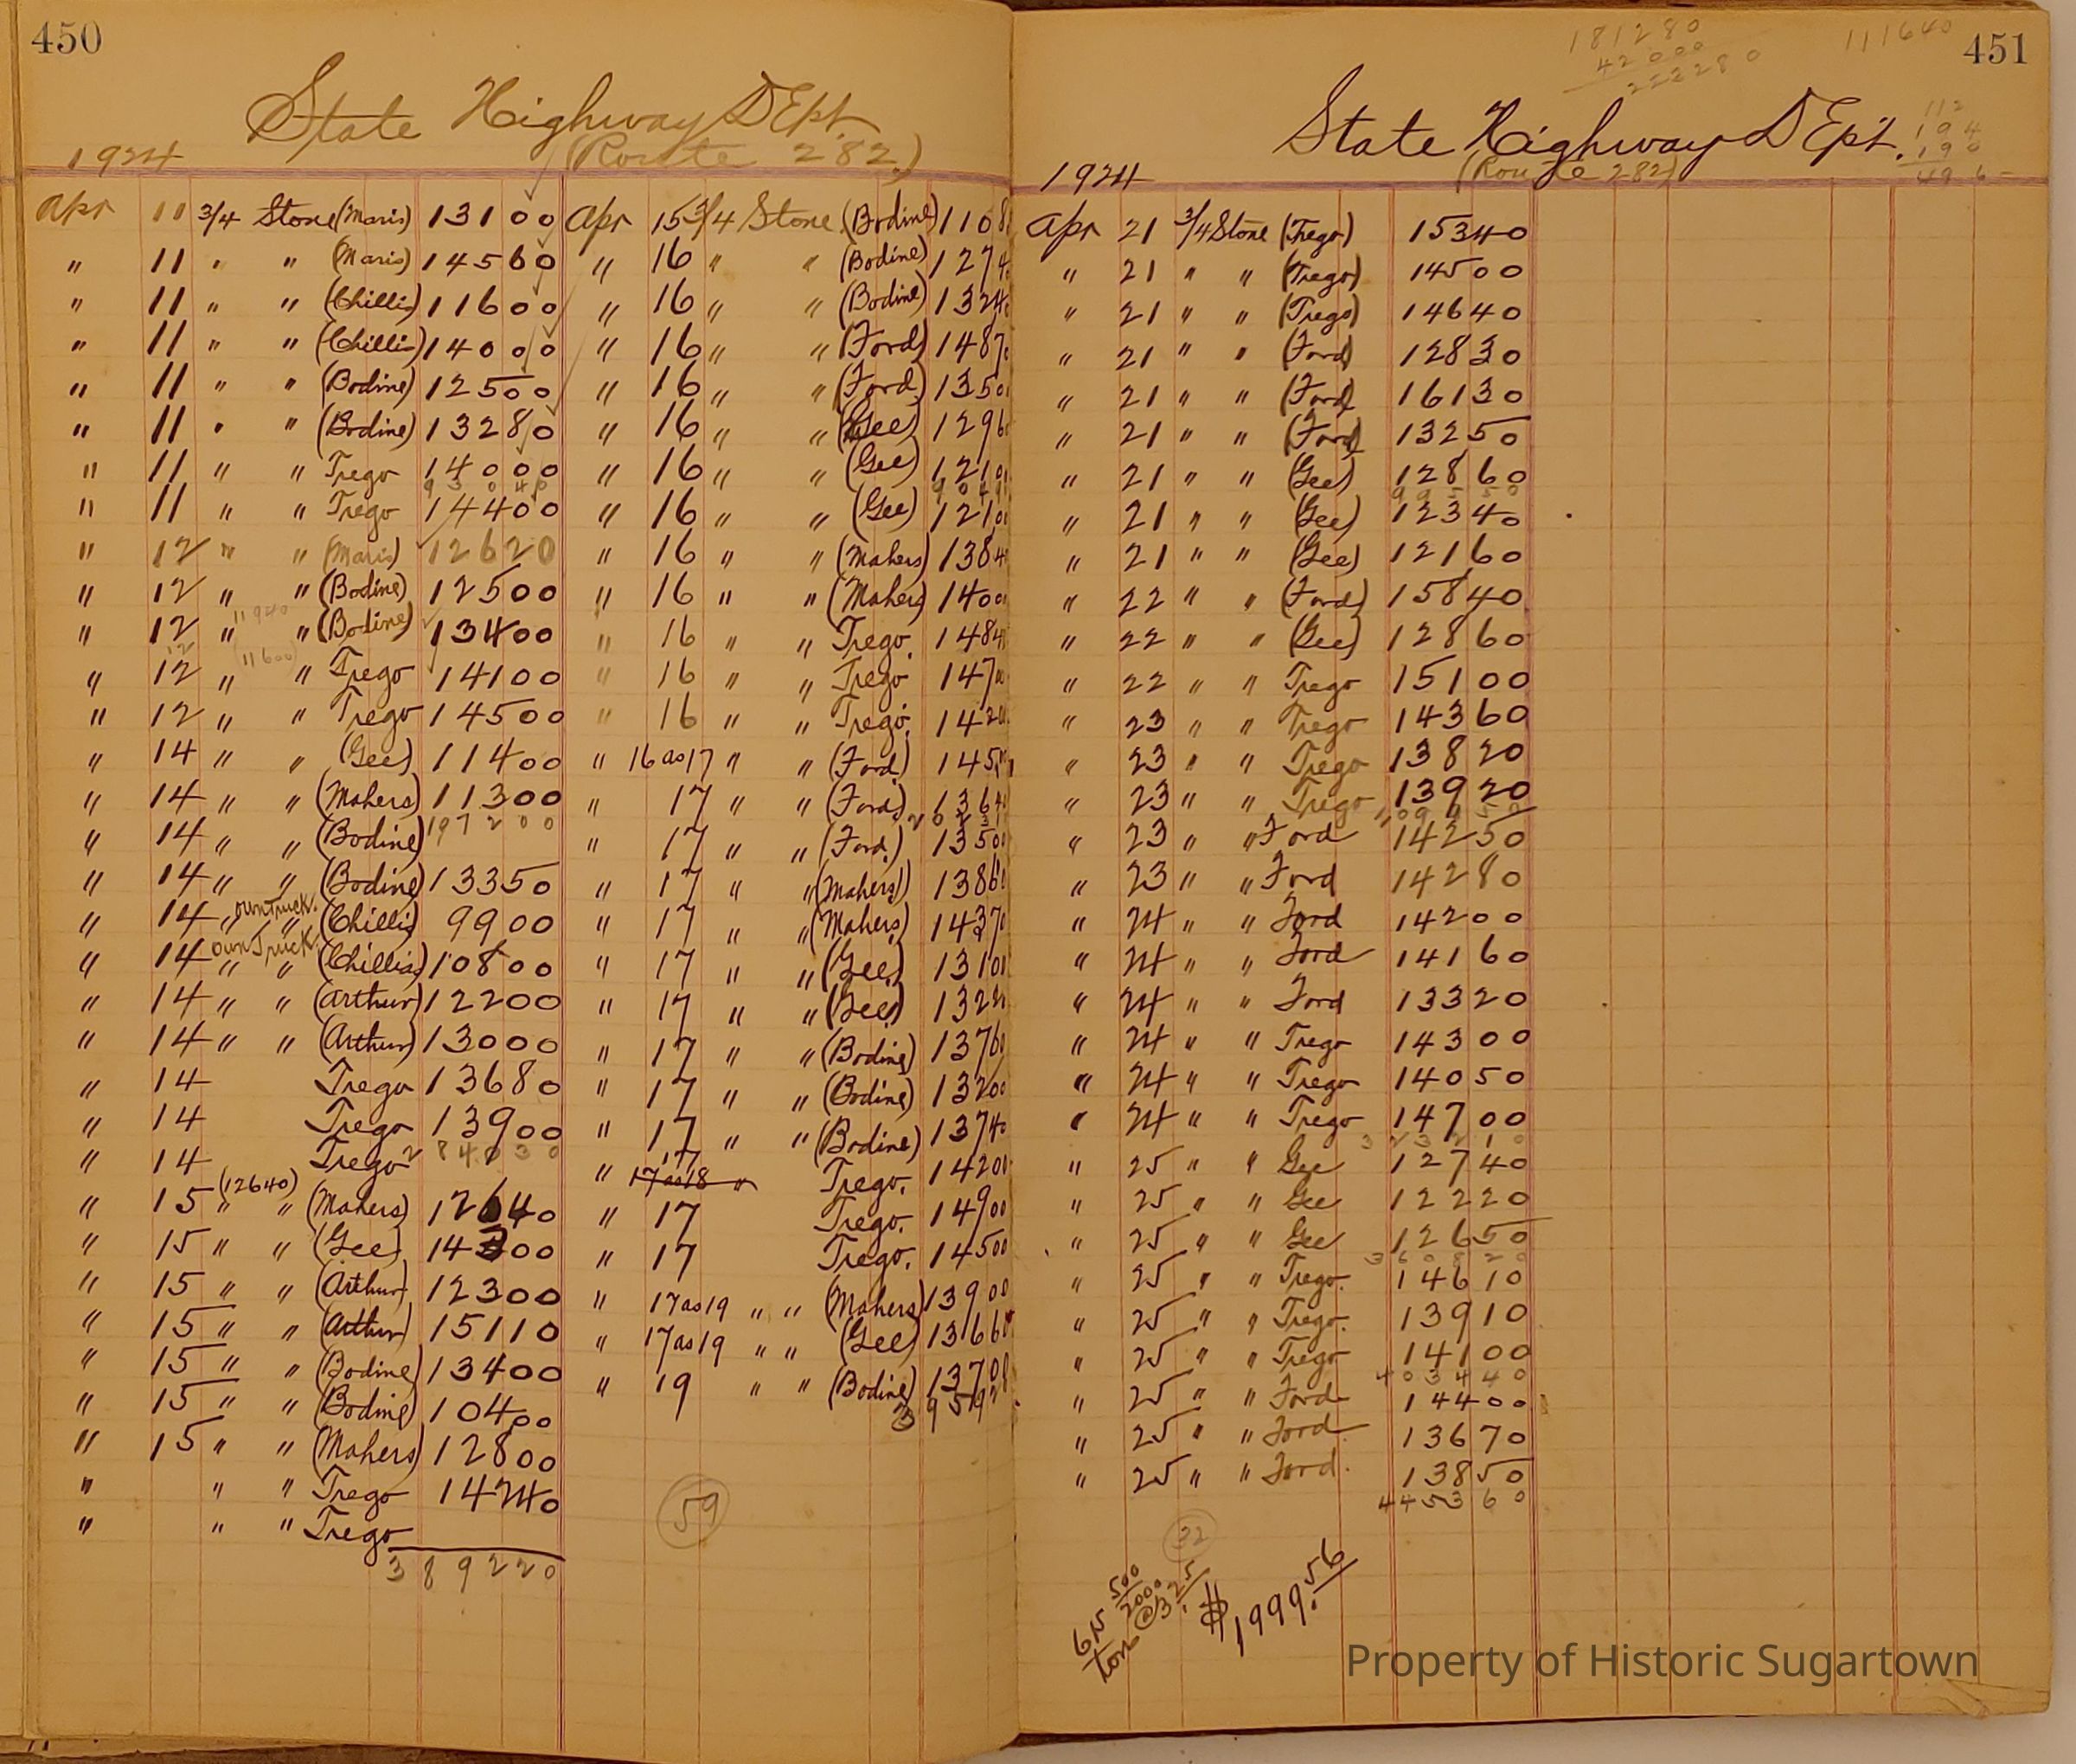 450
State Highway DEpt.
1924 (Route 282.)
Apr 11 3/4 Stone (Maris) 13100
" 11 " " (Maris) 14560
" 11 " " (Chillis) 11600
" 11 " " (Chillis) 14000
" 11 " " (Bodine) 12500
" 11 " " (Bodine) 13280
" 11 " " Trego 14000
93040
" 11 " " Trego 14400
" 12 " " (Maris) 12620
" 12 " " (Bodine) 12500
11940
" 12 " " (Bodine) 13400
12 (11600)
" 12 " " Trego 14100
" 12 " " Trego 14500
" 14 " " (Gee) 11400
" 14 " " (Mahers) 11300
197200
" 14 " " (Bodine)
" 14 " " (Bodine) 13350
own Truck.
" 14 " " (Chillis) 9900
own Truck.
" 14 " " (Chillis) 10800
" 14 " " (Arthur) 12200
" 14 " " (Arthur) 13000
" 14 Trego 13680
" 14 Trego 13900
" 14 Trego 284030
(12640)
" 15 " " (Mahers) 12640
" 15 " " (Gee) 14300
" 15 " " (Arthur) 12300
" 15 " " (Arthur) 15110
" 15 " " (Bodine) 13400
" 15 " " (Bodine) 10400
" 15 " " (Mahers) 12800
" " " Trego 14240
" " " Trego
389220
Apr 15 3/4 Stone (Bodine) 1108
" 16 " " (Bodine) 1274
" 16 " " (Bodine) 1324
" 16 " " (Ford) 1487
" 16 " " (Ford) 1350
" 16 " " (Gee) 1296
" 16 " " (Gee) 1219
" 16 " " (Gee) 1210
" 16 " " (Mahers) 1384
" 16 " " (Mahers) 1400
" 16 " " Trego. 1484
" 16 " " Trego. 147
" 16 " " Trego. 142
" 16 as 17 " " (Ford.) 145
" 17 " " (Ford)
" 17 " " (Ford.) 1350
" 17 " " (Mahers) 1386
" 17 " " (Mahers) 1437
" 17 " " (Gee) 1310
" 17 " " (Gee) 132
" 17 " " (Bodine) 1376
" 17 " " (Bodine) 1320
" 17 " " (Bodine) 1374
17
" 17 as 18 " Trego. 14200
" 17 Trego. 14900
" 17 Trego. 14500
" 17 as 19 " " (Mahers) 13900
" 17 as 19 " " (Gee) 1366
" 19 " " (Bodine) 1370
59
451
181280
42000
222280
111640
112
194
190
496
State Highway DEpt.
1924 (Route 282)
Apr 21 3/4 Stone (Trego) 15340
" 21 " " (Trego) 14500
" 21 " " (Trego) 14640
" 21 " " (Ford) 12830
" 21 " " (Ford) 16130
" 21 " " (Ford) 13250
" 21 " " (Gee) 12860
99550
" 21 " " (Gee) 12340
" 21 " " (Gee) 12160
" 22 " " (Ford) 15840
" 22 " " (Gee) 12860
" 22 " " Trego 15100
" 23 " " Trego 14360
" 23 " " Trego 13820
" 23 " " Trego 13920
" 23 " " Ford 14250
" 23 " " Ford 14280
" 24 " " Ford 14200
" 24 " " Ford 14160
" 24 " " Ford 13320
" 24 " " Trego 14300
" 24 " " Trego 14050
" 24 " " Trego 14700
323210
" 25 " " Gee 12740
" 25 " " Gee 12220
" 25 " " Gee 12650
360820
" 25 " " Trego. 14610
" 25 " " Trego. 13910
" 25 " " Trego 14100
403440
" 25 " " Ford 14400
" 25 " " Ford 13670
" 25 " " Ford. 13850
445360
32
615 500/2000 tons @ 3.25
$1999.56
Property of Historic Sugartown